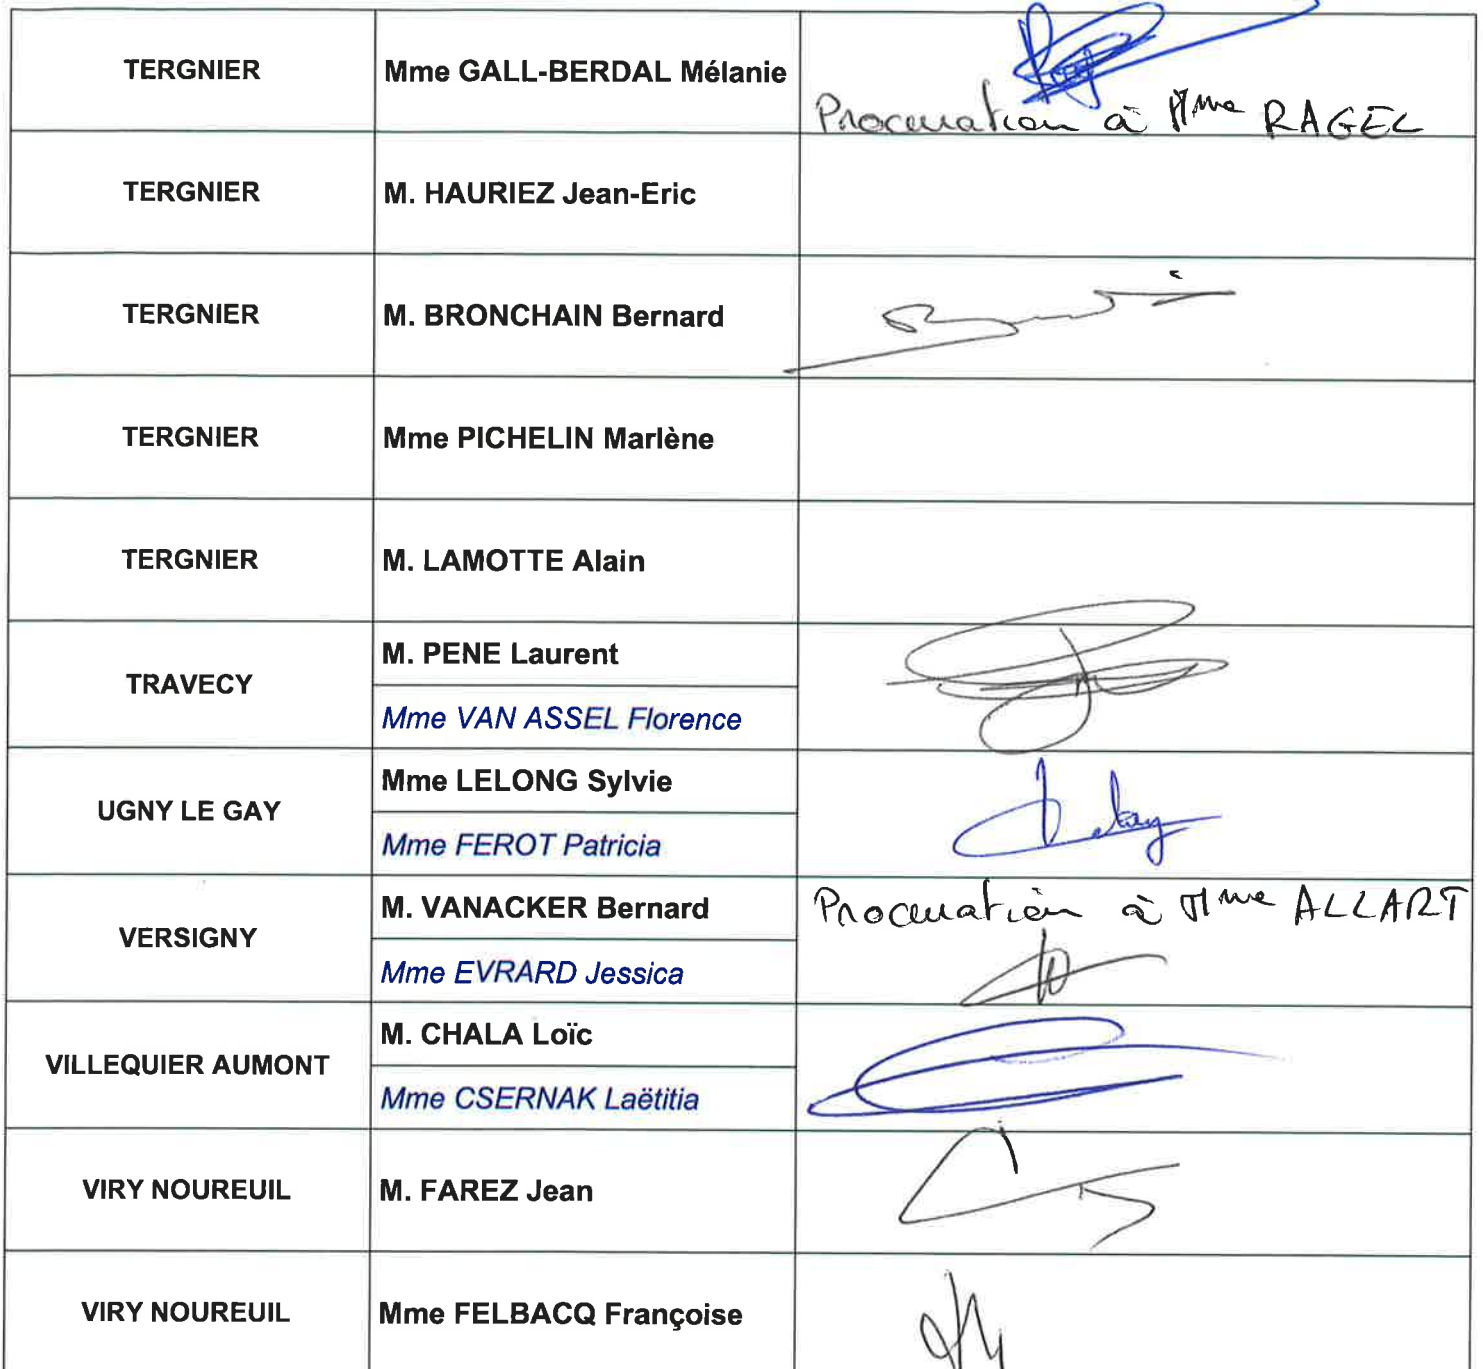 TERGNIER
Mme GALL-BERDAL Mélanie
Procuration à Mme RAGEL
TERGNIER
M. HAURIEZ Jean-Eric
TERGNIER
M. BRONCHAIN Bernard
TERGNIER
Mme PICHELIN Marlène
TERGNIER
M. LAMOTTE Alain
TRAVECY
M. PENE Laurent
Mme VAN ASSEL Florence
UGNY LE GAY
Mme LELONG Sylvie
Mme FEROT Patricia
VERSIGNY
M. VANACKER Bernard
Mme EVRARD Jessica
Procuration à Mme ALLART
VILLEQUIER AUMONT
M. CHALA Loïc
Mme CSERNAK Laëtitia
VIRY NOUREUIL
M. FAREZ Jean
VIRY NOUREUIL
Mme FELBACQ Françoise